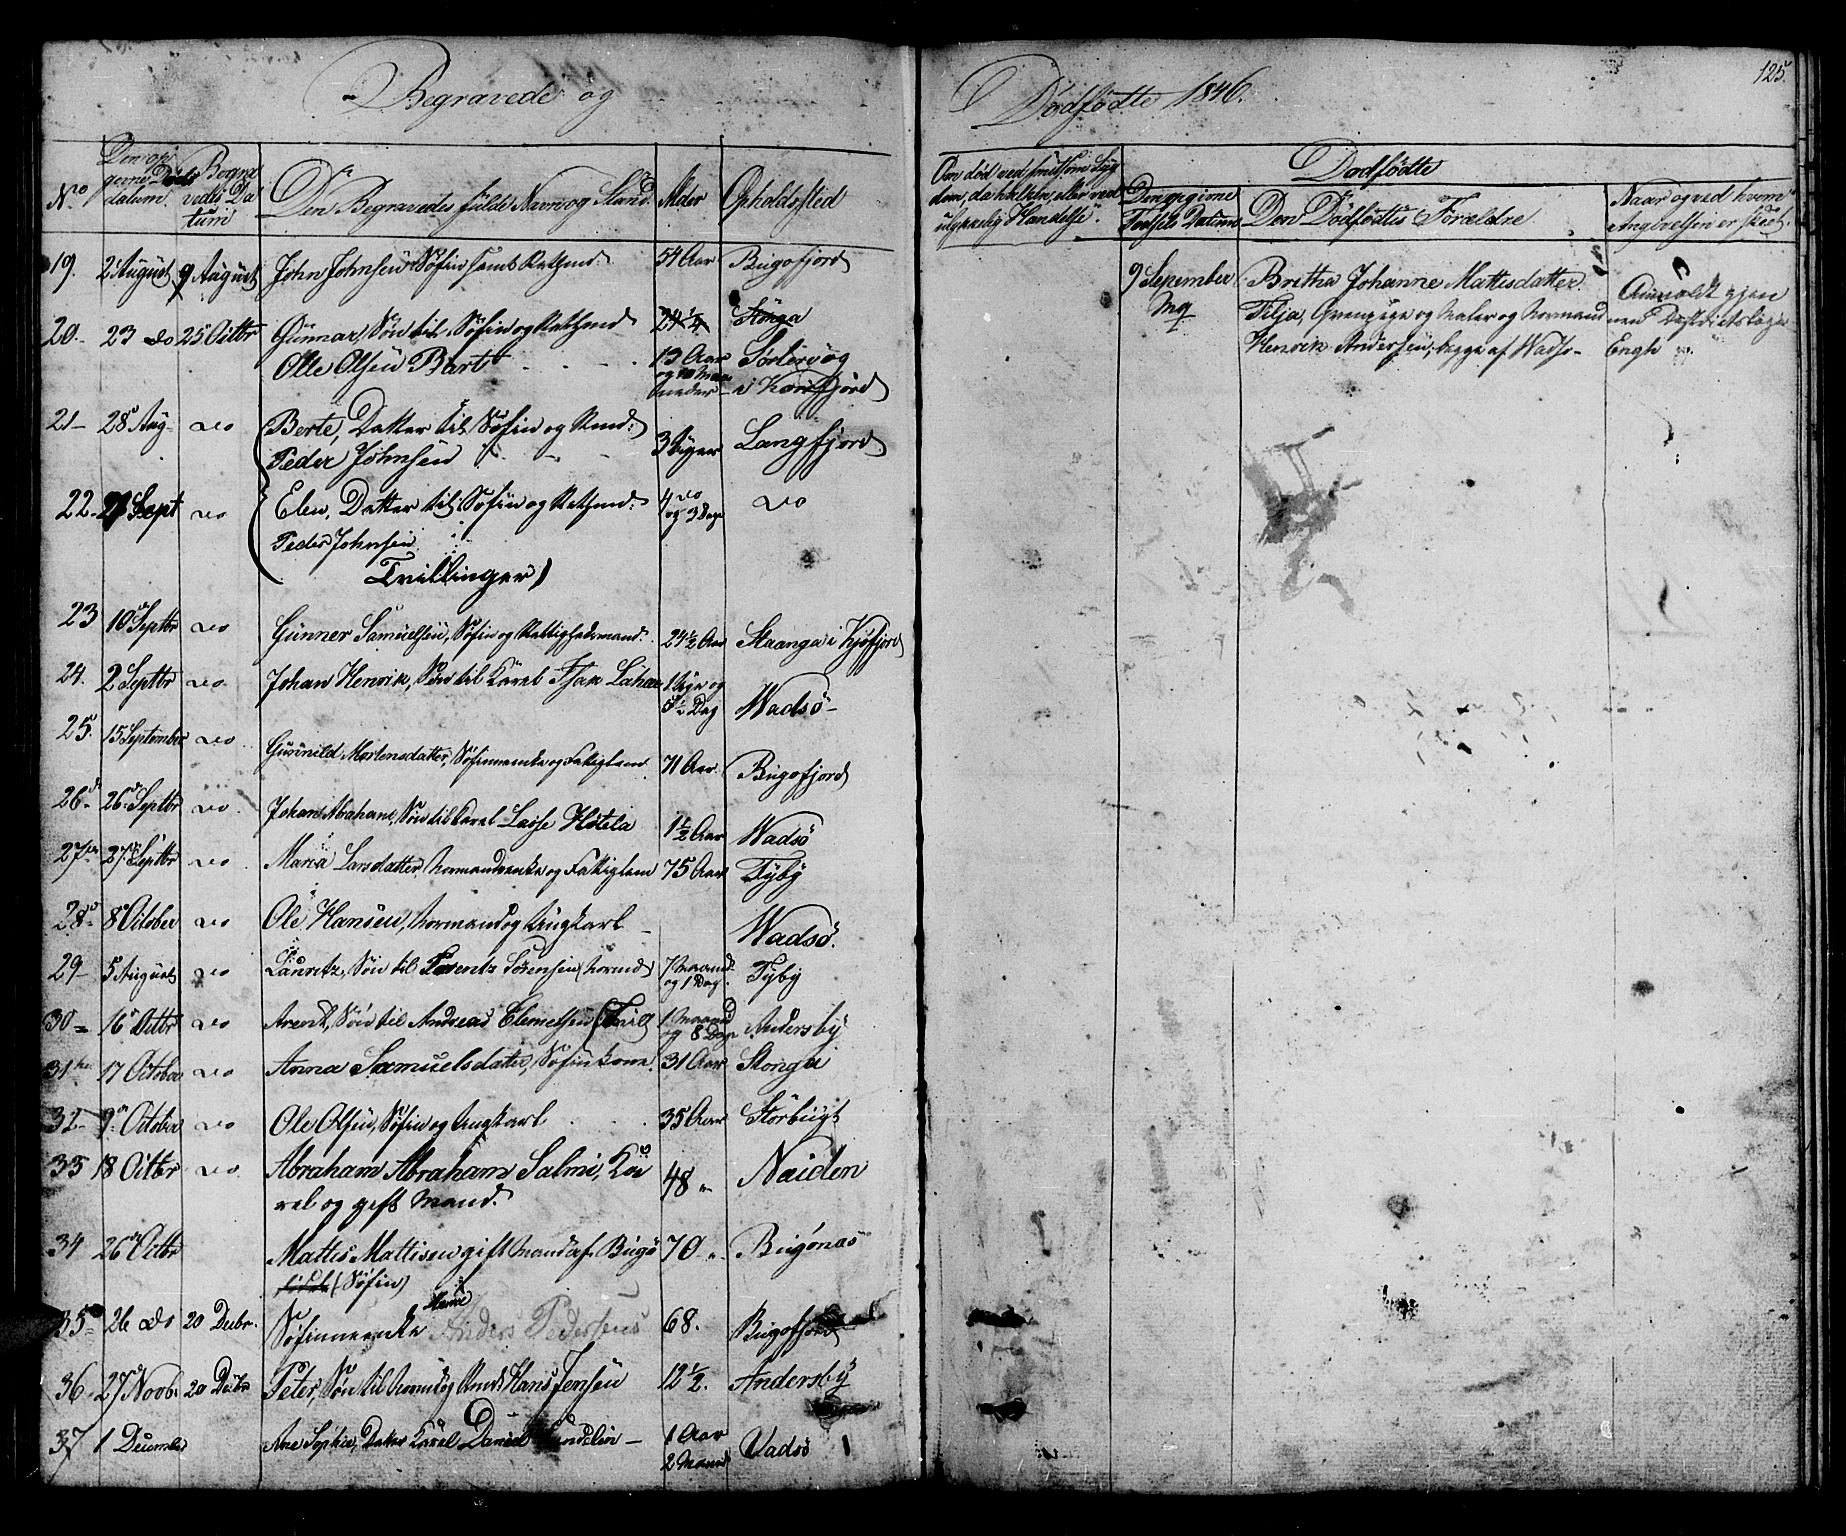 Begravede og
No Den opgivne Døds datum. Begravedes Datum Den Begravedes fulde Navn og Stand. Alder Opholdssted
19. 2 August 9 August John Johnsen Søfin samt Retsmd: 54 Aar Bugøfjord
20. 23 do 25 Octbr Gunnar, Søn til Søfin og Retsmd 24 ½ Stonga
Olle Olsen Bart 13 Aar og 10 Maaneder i Korsfjord
21 28 Aug do Berte, Datter til Søfin og Rmd: 3 Uger Langfjord
Peder Johnsen
22 Sept do Elen, Datter til Søfin og Retsmd: 4 do og 3 Dage do
Peder Johnsen
Tvillinger)
23 10 Septbr do Gunner Samuelsen, Søfin og Rettighedsmand. 24½ Aar Staanga i Kjøfjord
24. 2 Septbr do Johan Henrik, Søn til Kvæl Isak 1 Uge og 5½ Dag Wadsø
25. 15 September do Gunnild Mortensdatter, Søfinneenke og Fattiglem 71 Aar Bugøfjord
26 26 Septbr do Johan Abraham, Søn til Kvæl Lasse 1½ Aar Wadsø
27 27 Septbr do Maria Larsdatter, Normandsenke og Fattiglem 75 Aar Fyby
28 8 October do Ole Hansen, Normand og Ungkarl Wadsø.
29 5 August do Lauritz, Søn til Lorentz Sørensen (Normd) 7 Maand og 1 Dag. Fyby
30 16 Octbr do Arent, Søn til Andreas Clemetsen 1 Maaned og 8 Dage Andersby
31 17 October do Anna Samuelsdatter, Søfinkone. 31 Aar Stonga
32 9 October do Ole Olsen, Søfin og Ungkarl 35 Aar Storbugt
33 18 Octbr do Abraham Abraham Salmi, Kvæl og gift Mand. 48 " Naiden
34 26 Octbr Mattis Mattisen gift Mand af Bugø (Søfin) 70 " Bugønæs
35 26 do 20 Decbr. Søfinneenke Anders Pedersens 68. Bugøfjord
36 27 Novb. 20 Decbr Peter, Søn til Nomd og Rmd. Hans Jensen 12½. Andersby
37 1 December Ane Sophie, Datter Kvæl Daniel 1 Aar 2 Maand Vadsø
Dødfødte 1846.
125
Om død ved smitsom Sygdom, da hvilken, eller ved ulykkelig Hændelse. Dødfødte
Den opgivne Fødsels Datum Den Dødfødtes Forældre Naar og ved hvem Angivelsen er skeet.
9 Sepember Britha Johanne Mattisdatter
Pige, og Normand
Henrik Andersen, begge af Wadsø
Anmeldt gjennem Distriktslæge Engh